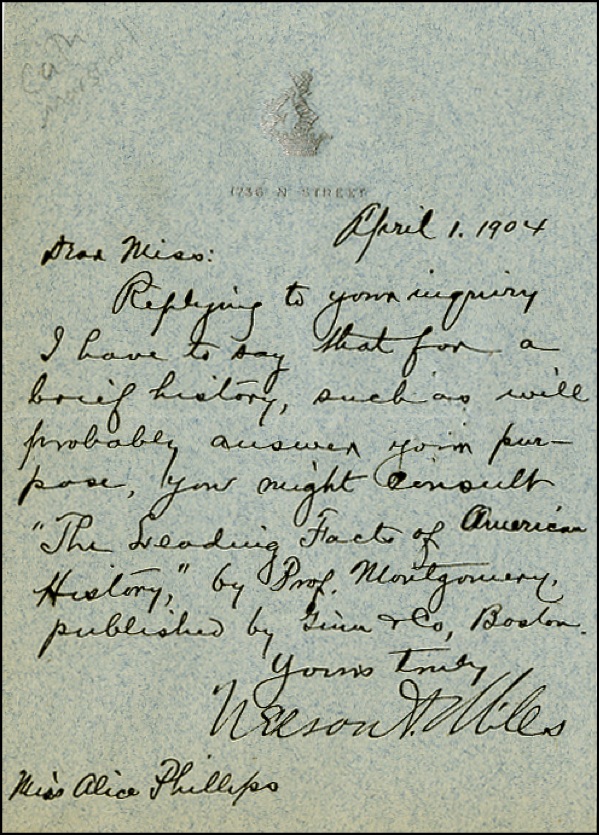 1736 N STREET
April 1. 1904
Dear Miss:
Replying to your inquiry
I have to say that for a
brief history, such as will
probably answer your pur-
pose, you might consult
"The Leading Facts of American
History," by Prof. Montgomery,
published by Ginn & Co, Boston.
Yours truly
Nelson A. Miles
Miss Alice Phillips